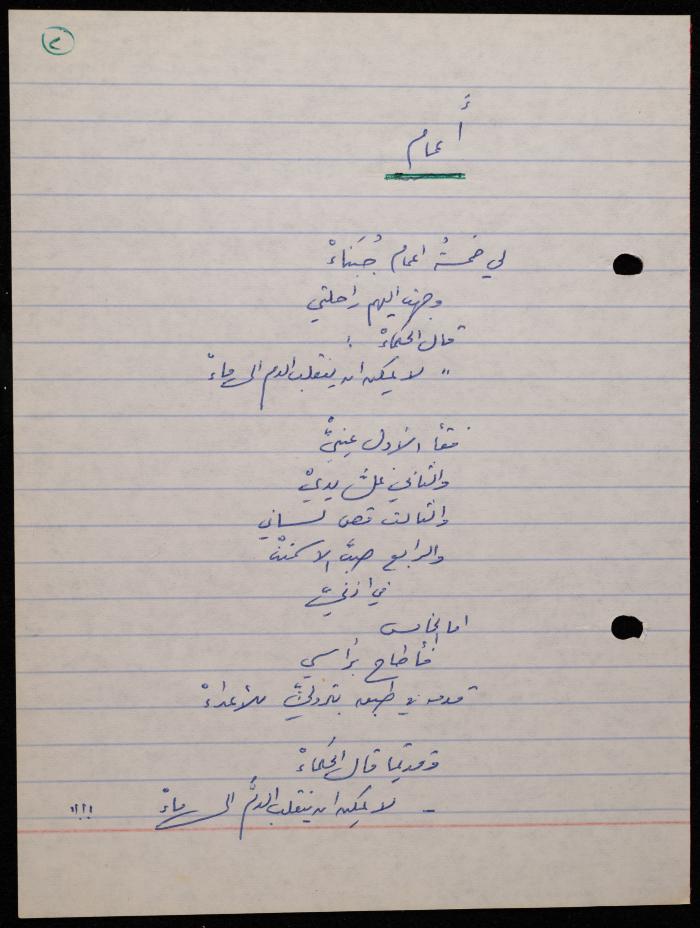 ٢
أعمام
لي خمسةُ اعمام جُبَناءْ
وجهت اليهم راحلتي
قال الحكماءْ :
" لا يمكن ان ينقلب الدم الى ماءْ
فقأ الأول عينيَّ
والثاني غلّ يديَّ
والثالث قص لساني
والرابع صبَّ الاسمنت
في اذنيَّ
اما الخامس
فأطاح برأسي
قدمه في طبق بتروليٍّ للأعداءْ
وقديما قال الحكماءْ
- لا يمكن ان ينقلب الدَّم الى ماءْ !!!